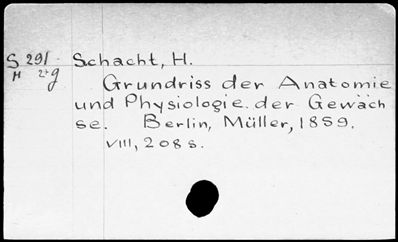 S 291 Schacht, H.
H 2+g
Grundriss der Anatomie
und Physiologie der Gewäch
se. Berlin, Müller, 1859.
VIII, 208 s.